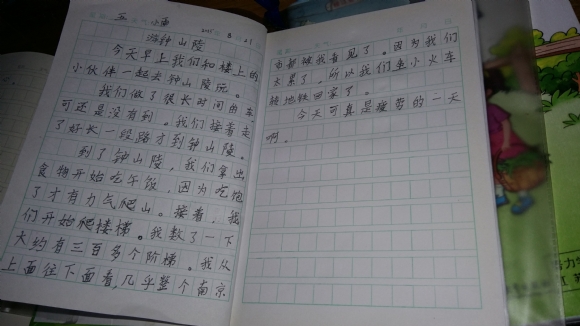 五 小雨
8 21
游钟山陵
今天早上我们和楼上的
小伙伴一起去钟山陵玩。
我们做了很长时间的车,
可还是没有到。我们接着走
了好长一段路才到钟山陵。
到了钟山陵,我们拿出
食物开始吃午饭,因为吃饱
了才有力气爬山。接着,我
们开始爬楼梯。我数了一下
大约有三百多个阶梯。我从
上面往下面看,几乎整个南京
市都被我看见了。因为我们
太累了,所以我们坐小火车
转地铁回家了。
今天可真是疲劳的一天
啊。